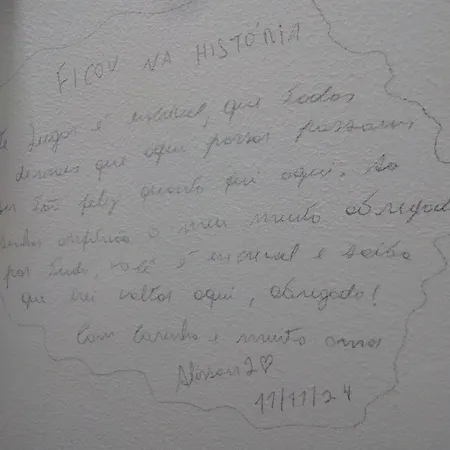 FICOU NA HISTÓRIA
lugar é incrível, que todos
que aqui passar possam
tão feliz quanto fui aqui. Ao
o meu muito obrigado
por tudo, você é incrível e saiba
que irei voltar aqui, obrigado!
Com carinho e muito amor
11/11/24